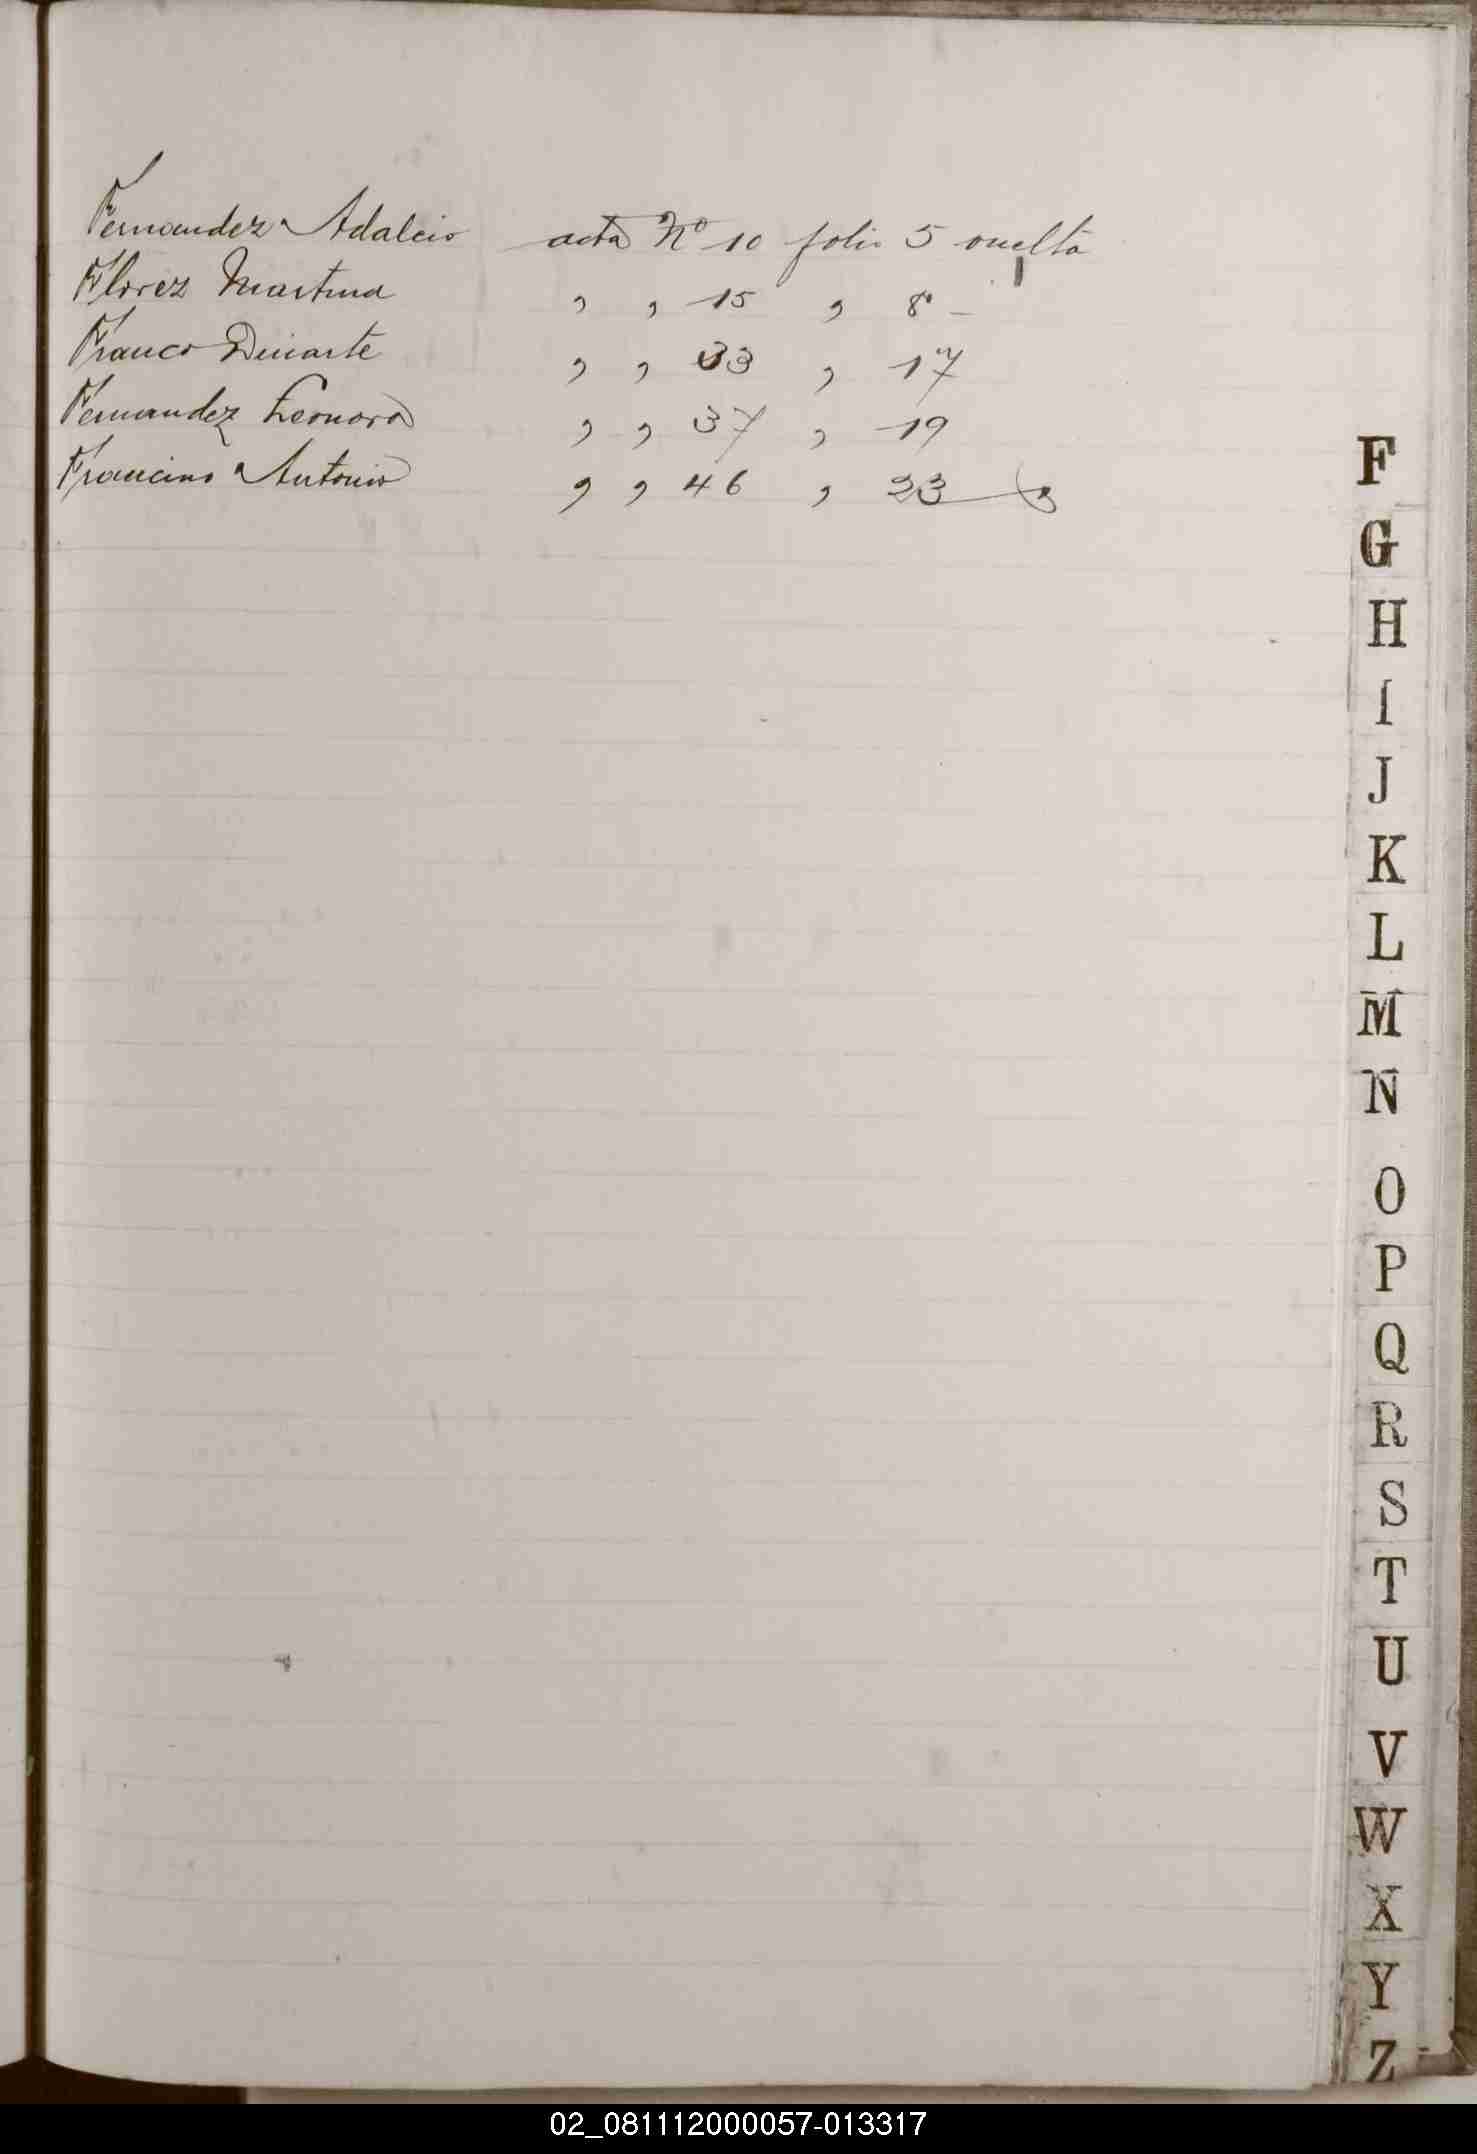 Fernandez Adalcio acta Nº 10 folio 5 vuelta
Florez Martina , , 15 , 8 -
Franco Duarte , , 33 , 17
Fernandez Leonora , , 37 , 19
Francino Antonio , , 46 , 23
F
G
H
I
J
K
L
M
N
O
P
Q
R
S
T
U
V
W
X
Y
Z
02_081112000057-013317